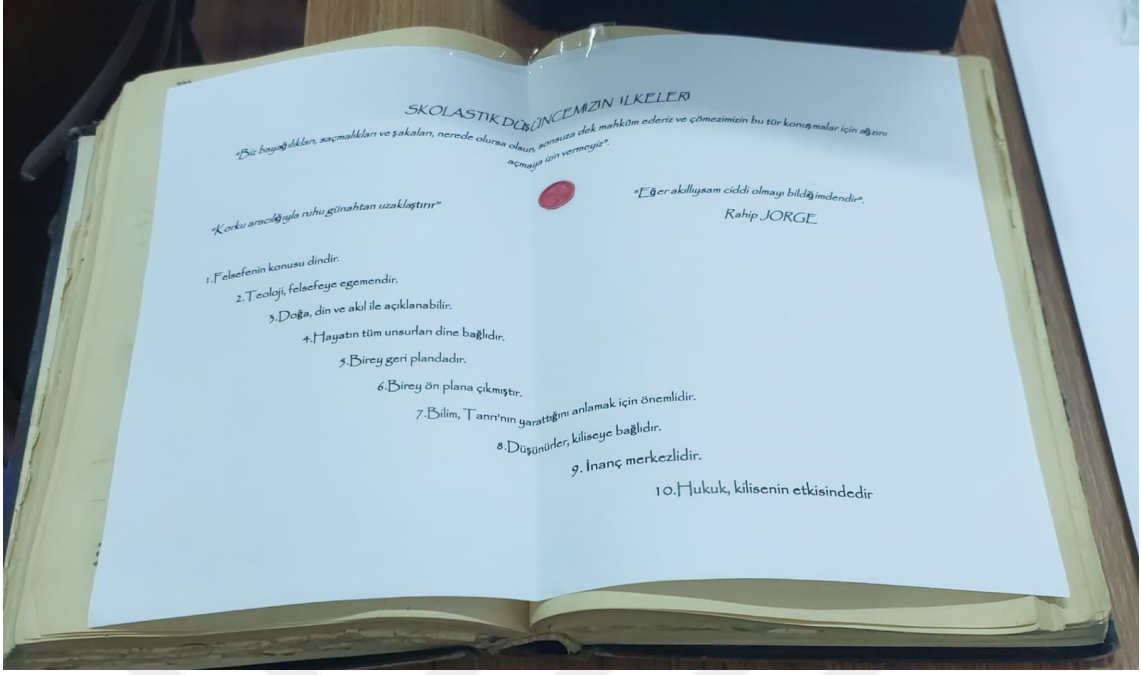 SKOLASTİK DÜŞÜNCEMİZİN İLKELERİ
"Biz bayağılıkları, saçmalıkları ve şakaları, nerede olursa olsun, sonsuza dek mahkûm ederiz ve çömezimizin bu tür konuşmalar için ağzını
açmaya izin vermeyiz".
"Korku aracılığıyla ruhu günahtan uzaklaştırır"
"Eğer akıllıysam ciddi olmayı bildiğimdendir".
Rahip JORGE
1.Felsefenin konusu dindir.
2.Teoloji, felsefeye egemendir.
3.Doğa, din ve akıl ile açıklanabilir.
4.Hayatın tüm unsurları dine bağlıdır.
5.Birey geri plandadır.
6.Birey ön plana çıkmıştır.
7.Bilim, Tanrı'nın yarattığını anlamak için önemlidir.
8.Düşünürler, kiliseye bağlıdır.
9. İnanç merkezlidir.
10.Hukuk, kilisenin etkisindedir